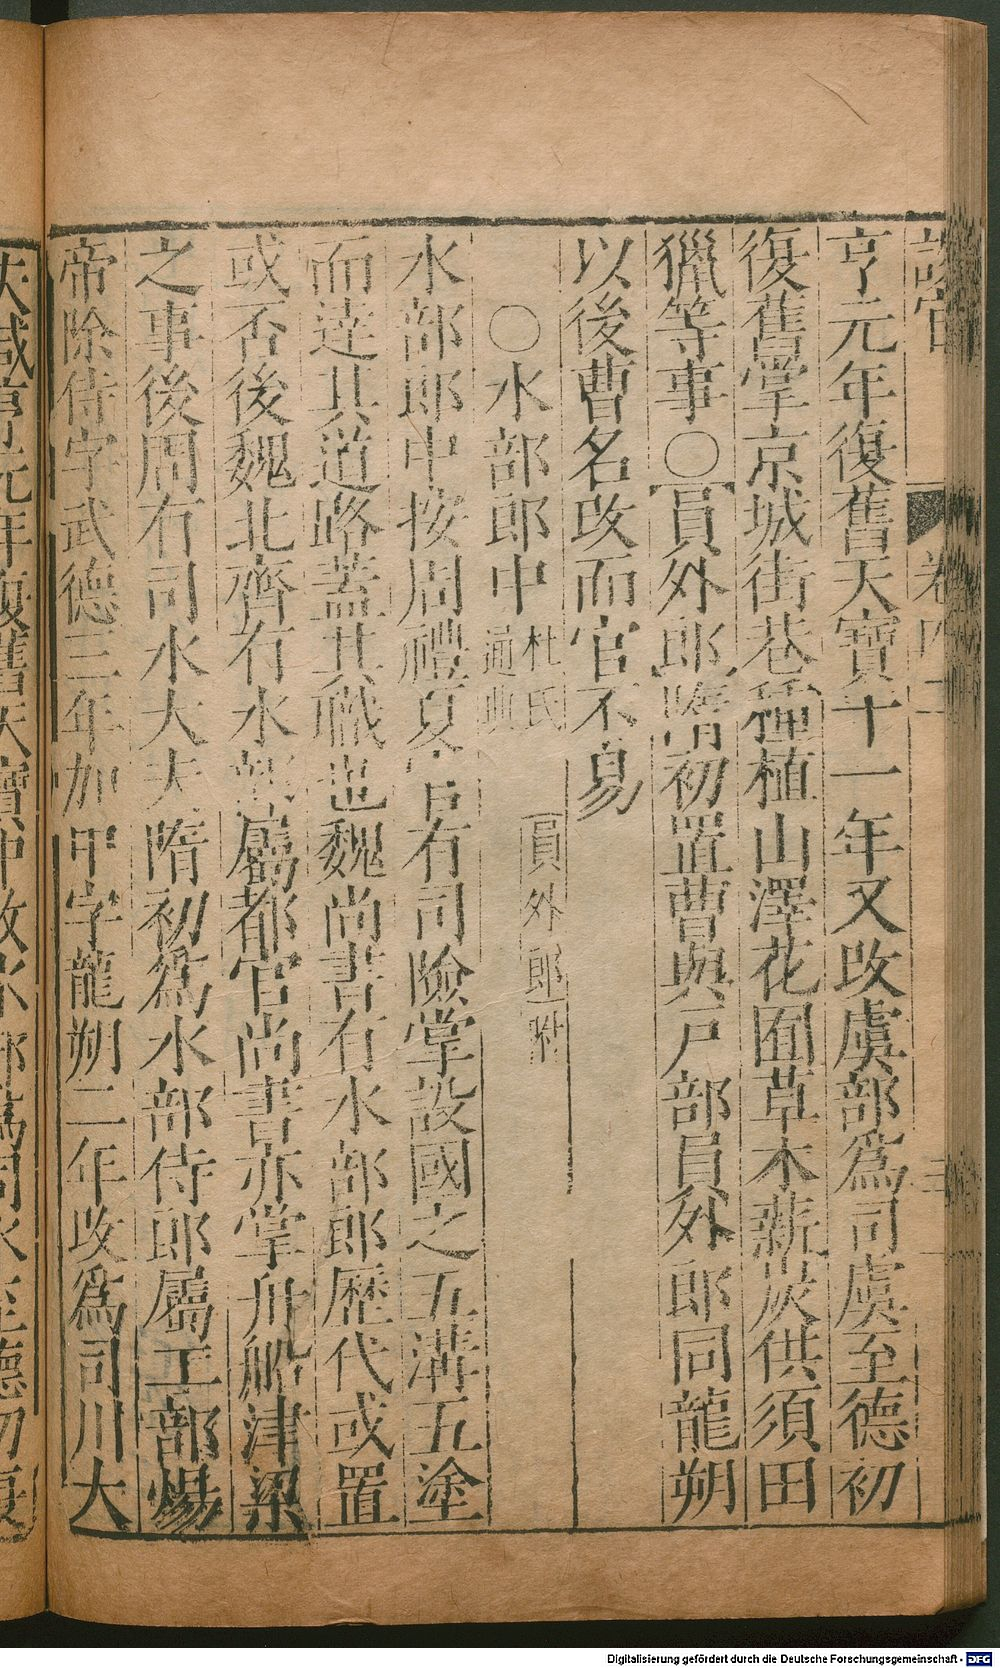 亨元年復舊天寶十一年又改虞部爲司虞至德初
復舊掌京城街巷種植山澤花囿草木薪炭供須田
獵等事○員外郎隋初置曹與戶部員外郎同龍朔
以後曹名改而官不易
○水部郎中 杜氏通典 員外郎附
水部郎中按周禮夏官有司險掌設國之五溝五塗
而達其道路蓋其職也魏尚書有水部郎歷代或置
或否後魏北齊有水部屬都官尚書亦掌舟船津梁
之事後周有司水大夫隋初爲水部侍郎屬工部煬
帝除侍字武德三年加中字龍朔二年改爲司川大
夫咸亨元年復舊天寶中改水部爲司水至德初復
Digitalisierung gefördert durch die Deutsche Forschungsgemeinschaft - DFG